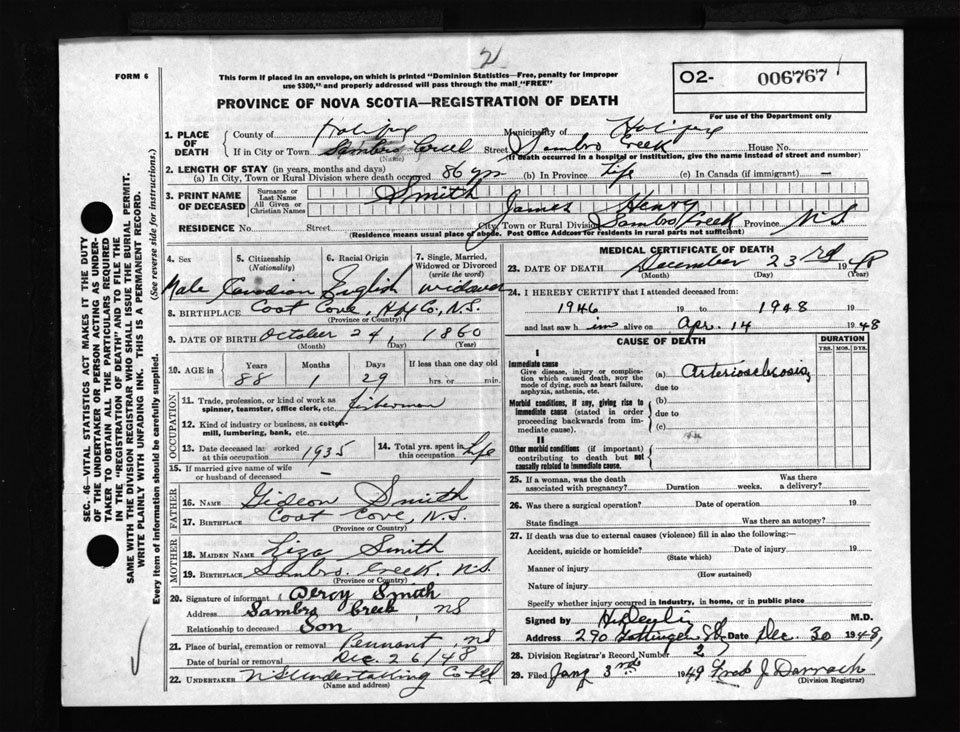 2
FORM 6
This form if placed in an envelope, on which is printed "Dominion Statistics—Free, penalty for improper
use $300," and properly addressed will pass through the mail "FREE"
O2- 006767
For use of the Department only
PROVINCE OF NOVA SCOTIA—REGISTRATION OF DEATH
1. PLACE OF DEATH
County of Halifax Municipality of Halifax
If in City or Town Sambro Creek Street Sambro Creek House No.
(Name) (If death occurred in a hospital or institution, give the name instead of street and number)
2. LENGTH OF STAY (in years, months and days)
(a) In City, Town or Rural Division where death occurred 86 yrs (b) In Province Life (c) In Canada (if immigrant) —
3. PRINT NAME OF DECEASED
Surname or Last Name Smith
All Given or Christian Names James Henry
RESIDENCE No. Street City, Town or Rural Division Sambro Creek Province N S
(Residence means usual place of abode. Post Office Address for residents in rural parts not sufficient)
4. Sex Male
5. Citizenship (Nationality) Canadian
6. Racial Origin English
7. Single, Married, Widowed or Divorced (write the word) widower
8. BIRTHPLACE Coot Cove, Hfx Co., N.S.
(Province or Country)
9. DATE OF BIRTH October 24, 1860
(Month) (Day) (Year)
10. AGE in Years 88 Months 1 Days 29 If less than one day old hrs. or min.
OCCUPATION
11. Trade, profession, or kind of work as spinner, teamster, office clerk, etc. fisherman
12. Kind of industry or business, as cotton-mill, lumbering, bank, etc.
13. Date deceased last worked at this occupation 1935
14. Total yrs. spent in this occupation Life
15. If married give name of wife or husband of deceased —
FATHER
16. NAME Gideon Smith
17. BIRTHPLACE Coot Cove, N.S.
(Province or Country)
MOTHER
18. MAIDEN NAME Liza Smith
19. BIRTHPLACE Sambro Creek. N.S
(Province or Country)
20. Signature of informant Smith
Address Sambro Creek NS
Relationship to deceased Son
21. Place of burial, cremation or removal Pennant, NS
Date of burial or removal Dec 26/48
22. UNDERTAKER N S Undertaking Co Ltd
(Name and address)
MEDICAL CERTIFICATE OF DEATH
23. DATE OF DEATH December 23rd 1948
(Month) (Day) (Year)
24. I HEREBY CERTIFY that I attended deceased from:
1946 19 to 1948 19
and last saw him alive on Apr. 14 1948
CAUSE OF DEATH
DURATION
YRS. MOS. DYS.
I
Immediate cause
Give disease, injury or complication which caused death, not the mode of dying, such as heart failure, asphyxia, asthenia, etc.
(a) Arteriosclerosis
due to
Morbid conditions, if any, giving rise to immediate cause (stated in order proceeding backwards from immediate cause).
(b)
due to
(c)
II
Other morbid conditions (if important) contributing to death but not causally related to immediate cause.
25. If a woman, was the death associated with pregnancy? Duration weeks. Was there a delivery?
26. Was there a surgical operation? Date of operation 19
State findings Was there an autopsy?
27. If death was due to external causes (violence) fill in also the following:—
Accident, suicide or homicide? Date of injury 19
(State which)
Manner of injury
(How sustained)
Nature of injury
Specify whether injury occurred in industry, in home, or in public place
Signed by M.D.
Address 290 Gottingen St Date Dec. 30 1948,
28. Division Registrar's Record Number 2
29. Filed Jany 3rd 1949 Fred J Darrach
(Division Registrar)
SEC. 46—VITAL STATISTICS ACT MAKES IT THE DUTY
OF THE UNDERTAKER OR PERSON ACTING AS UNDER-
TAKER TO OBTAIN ALL THE PARTICULARS REQUIRED
IN THE "REGISTRATION OF DEATH" AND TO FILE THE
SAME WITH THE DIVISION REGISTRAR WHO SHALL ISSUE THE BURIAL PERMIT.
WRITE PLAINLY WITH UNFADING INK. THIS IS A PERMANENT RECORD.
Every item of Information should be carefully supplied. (See reverse side for instructions.)